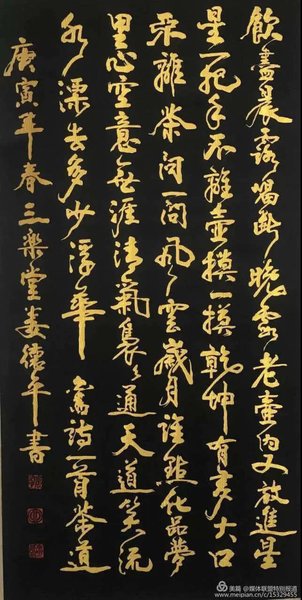 飲盡晨露喝斷晚霞老壺内又放進星
星一把手不離壺摸一摸乾坤有多大口
不離茶問一問風雲歲月誰點化品夢
里心空意無涯清氣裊裊通天道笑流
水漂去多少浮華 舊詩一首茶道
庚寅年春三樂堂姜德平書
美篇 @媒体联盟特别报道
www.meipian.cn/c/15329455